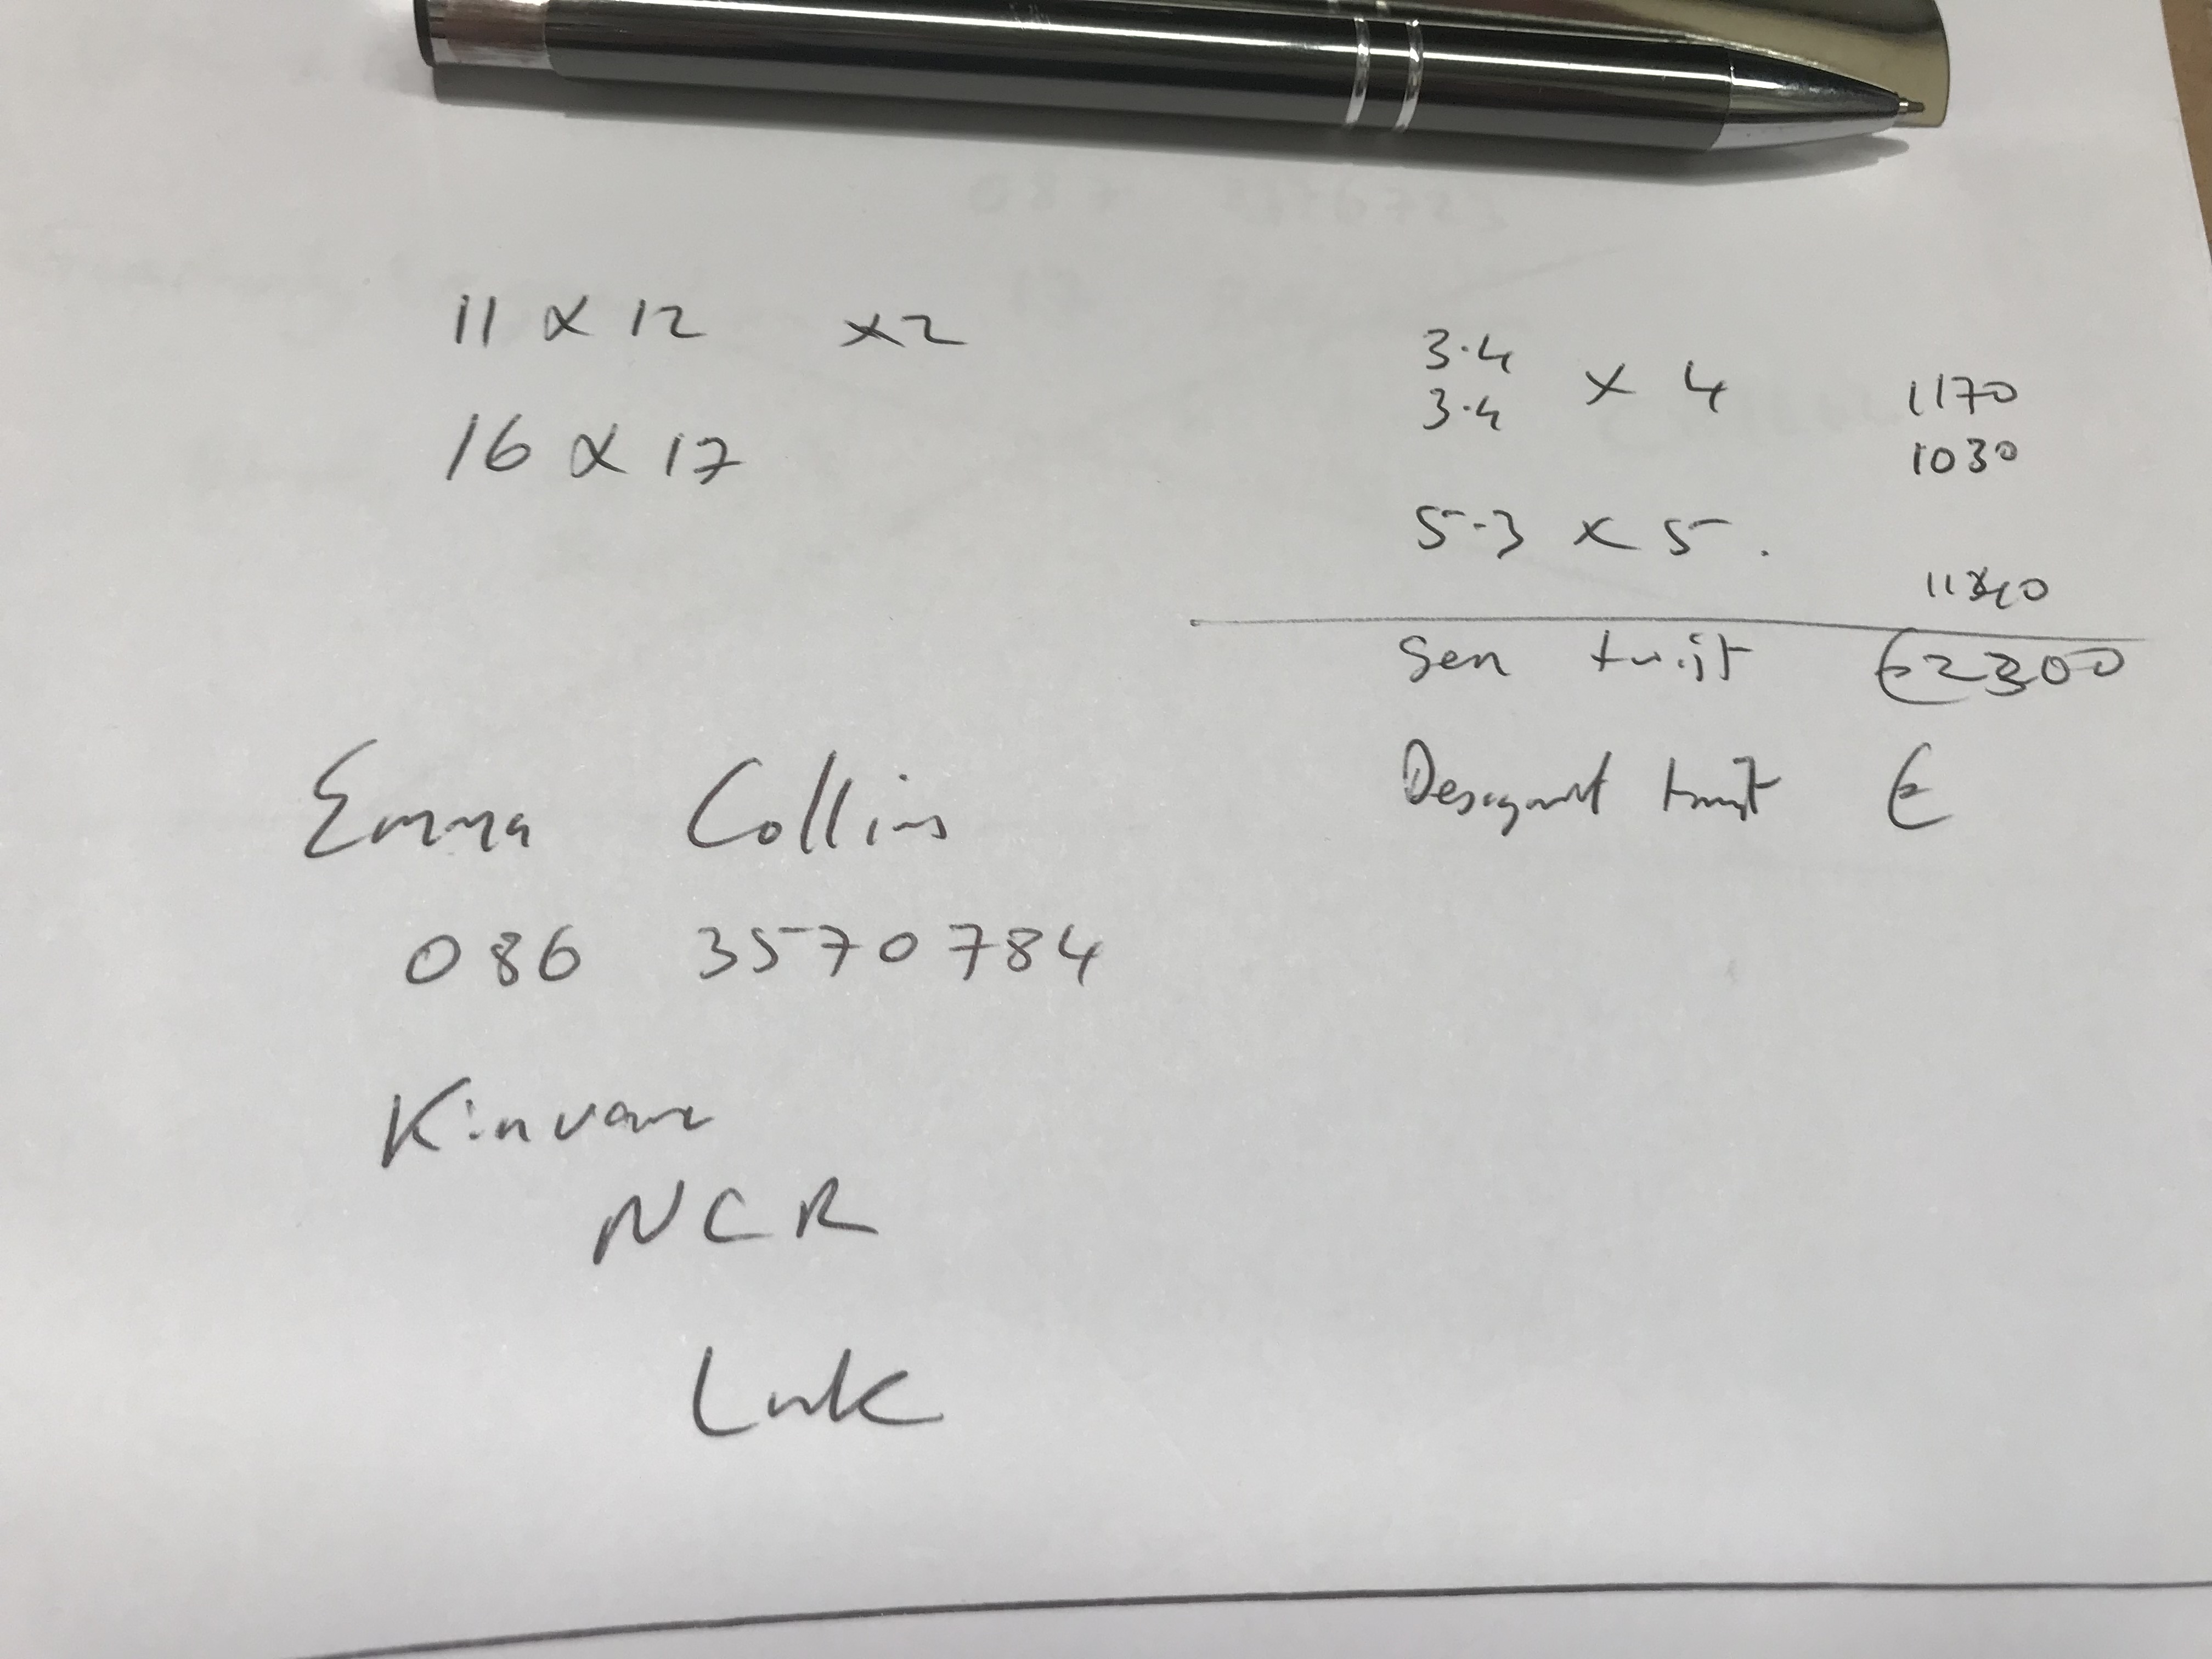 11 x 12 x2
16 x 17
3.4
3.4
x 4
1170
1030
5.3 x 5.
Gen twist €2300
Designer twist €
Emma Collins
086 3570784
Kinvara
NCR
Link